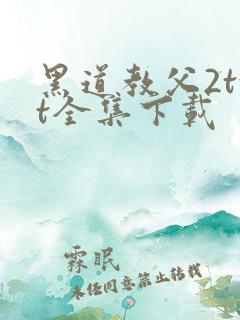 黑道教父2tx
t全集下载
霖眠
未经同意禁止转载